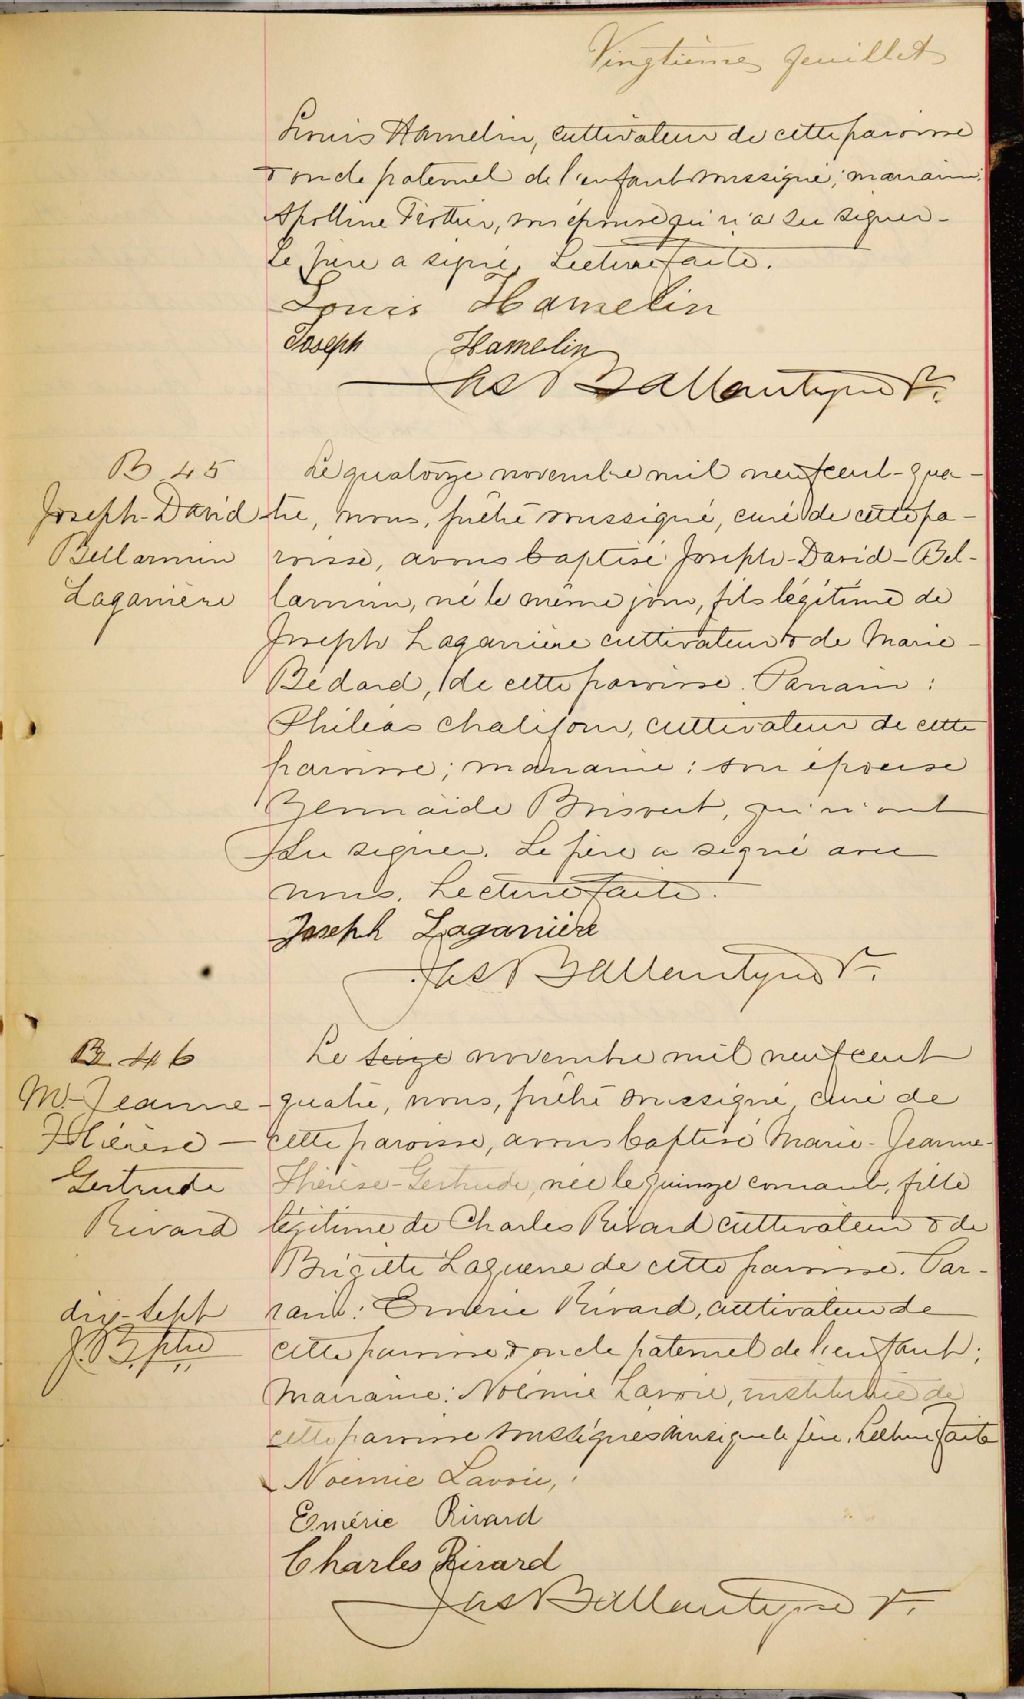 Vingtième feuillet
Louis Hamelin, cultivateur de cette paroisse
& oncle paternel de l'enfant soussigné; marraine:
Apolline Trottier, son épouse qui n'a su signer.
Le père a signé. Lecture faite.
Louis Hamelin
Joseph Hamelin
Jas Ballantyne Ptr.
B 45
Joseph-David
Bellarmin
Laganière
Le quatorze novembre mil neuf cent-qua-
tre, nous, prêtre soussigné, curé de cette pa-
roisse, avons baptisé Joseph-David-Bel-
larmin, né le même jour, fils légitime de
Joseph Laganière cultivateur & de Marie
Bédard, de cette paroisse. Parrain:
Philéas Chalifour, cultivateur de cette
paroisse; marraine: son épouse
Zermaïde Boisvert, qui n'ont
su signer. Le père a signé avec
nous. Lecture faite.
Joseph Laganière
Jas Ballantyne Ptr.
B 46
M.-Jeanne-
Thérèse-
Gertrude
Rivard
dix-sept
J. B. ptre
Le seize novembre mil neuf cent
quatre, nous, prêtre soussigné, curé de
cette paroisse, avons baptisé Marie-Jeanne-
Thérèse-Gertrude, née le quinze courant, fille
légitime de Charles Rivard cultivateur & de
Brigitte Laquerre de cette paroisse. Par-
rain: Emérie Rivard, cultivateur de
cette paroisse & oncle paternel de l'enfant;
Marraine: Noémie Lavoie, institutrice de
cette paroisse soussignés ainsi que le père. Lecture faite
Noémie Lavoie,
Emérie Rivard
Charles Rivard
Jas Ballantyne Ptr.